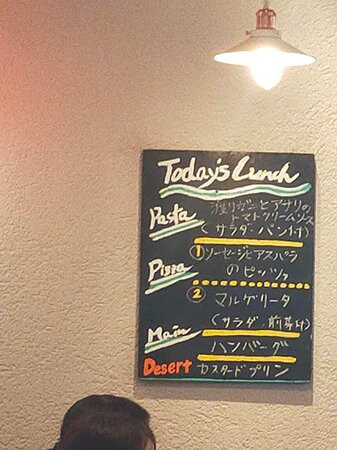 Today's Lunch
Pasta
とアサリの
トマトクリームソース
(サラダ・パン付)
Pizza
①ソーセージとアスパラ
のピッツァ
② マルゲリータ
(サラダ・前菜付)
Main ハンバーグ
Desert カスタードプリン